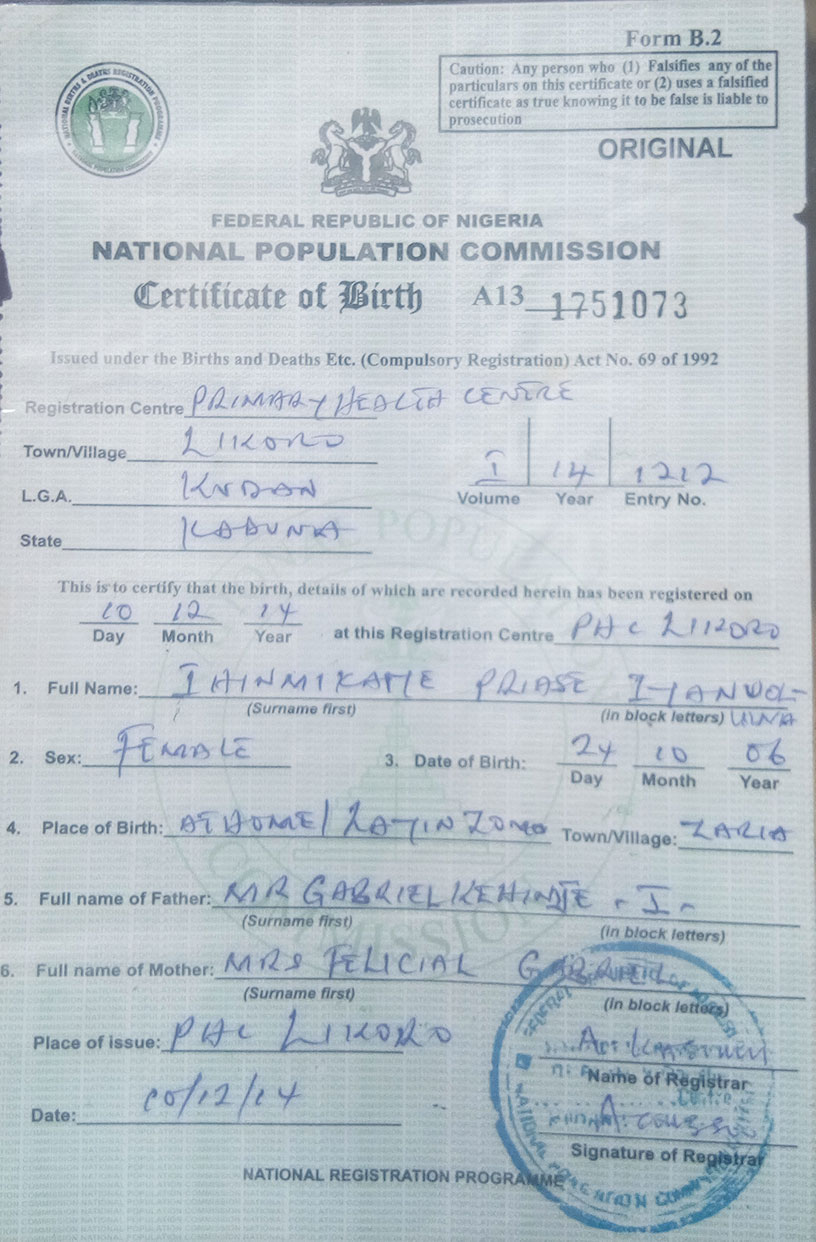 Form B.2
Caution: Any person who (1) Falsifies any of the
particulars on this certificate or (2) uses a falsified
certificate as true knowing it to be false is liable to
prosecution
ORIGINAL
FEDERAL REPUBLIC OF NIGERIA
NATIONAL POPULATION COMMISSION
Certificate of Birth A13 1751073
Issued under the Births and Deaths Etc. (Compulsory Registration) Act No. 69 of 1992
Registration Centre PRIMARY HEALTH CENTRE
Town/Village LIKORO
L.G.A. KUDAN
State KADUNA
I 14 1212
Volume Year Entry No.
This is to certify that the birth, details of which are recorded herein has been registered on
10 12 14
Day Month Year at this Registration Centre PHC LIKORO
1. Full Name: IHINMIKAIYE PRIASE IYANUOL-
(Surname first) (in block letters) UWA
2. Sex: FEMALE 3. Date of Birth: 24 10 06
Day Month Year
4. Place of Birth: AT HOME/ LAYIN ZOMO Town/Village: ZARIA
5. Full name of Father: MR GABRIEL KEHINDE - I -
(Surname first) (in block letters)
6. Full name of Mother: MRS FELICIAL GABRIEL
(Surname first) (in block letters)
Place of issue: PHC LIKORO
Name of Registrar
Date: 10/12/14
Signature of Registrar
NATIONAL REGISTRATION PROGRAMME